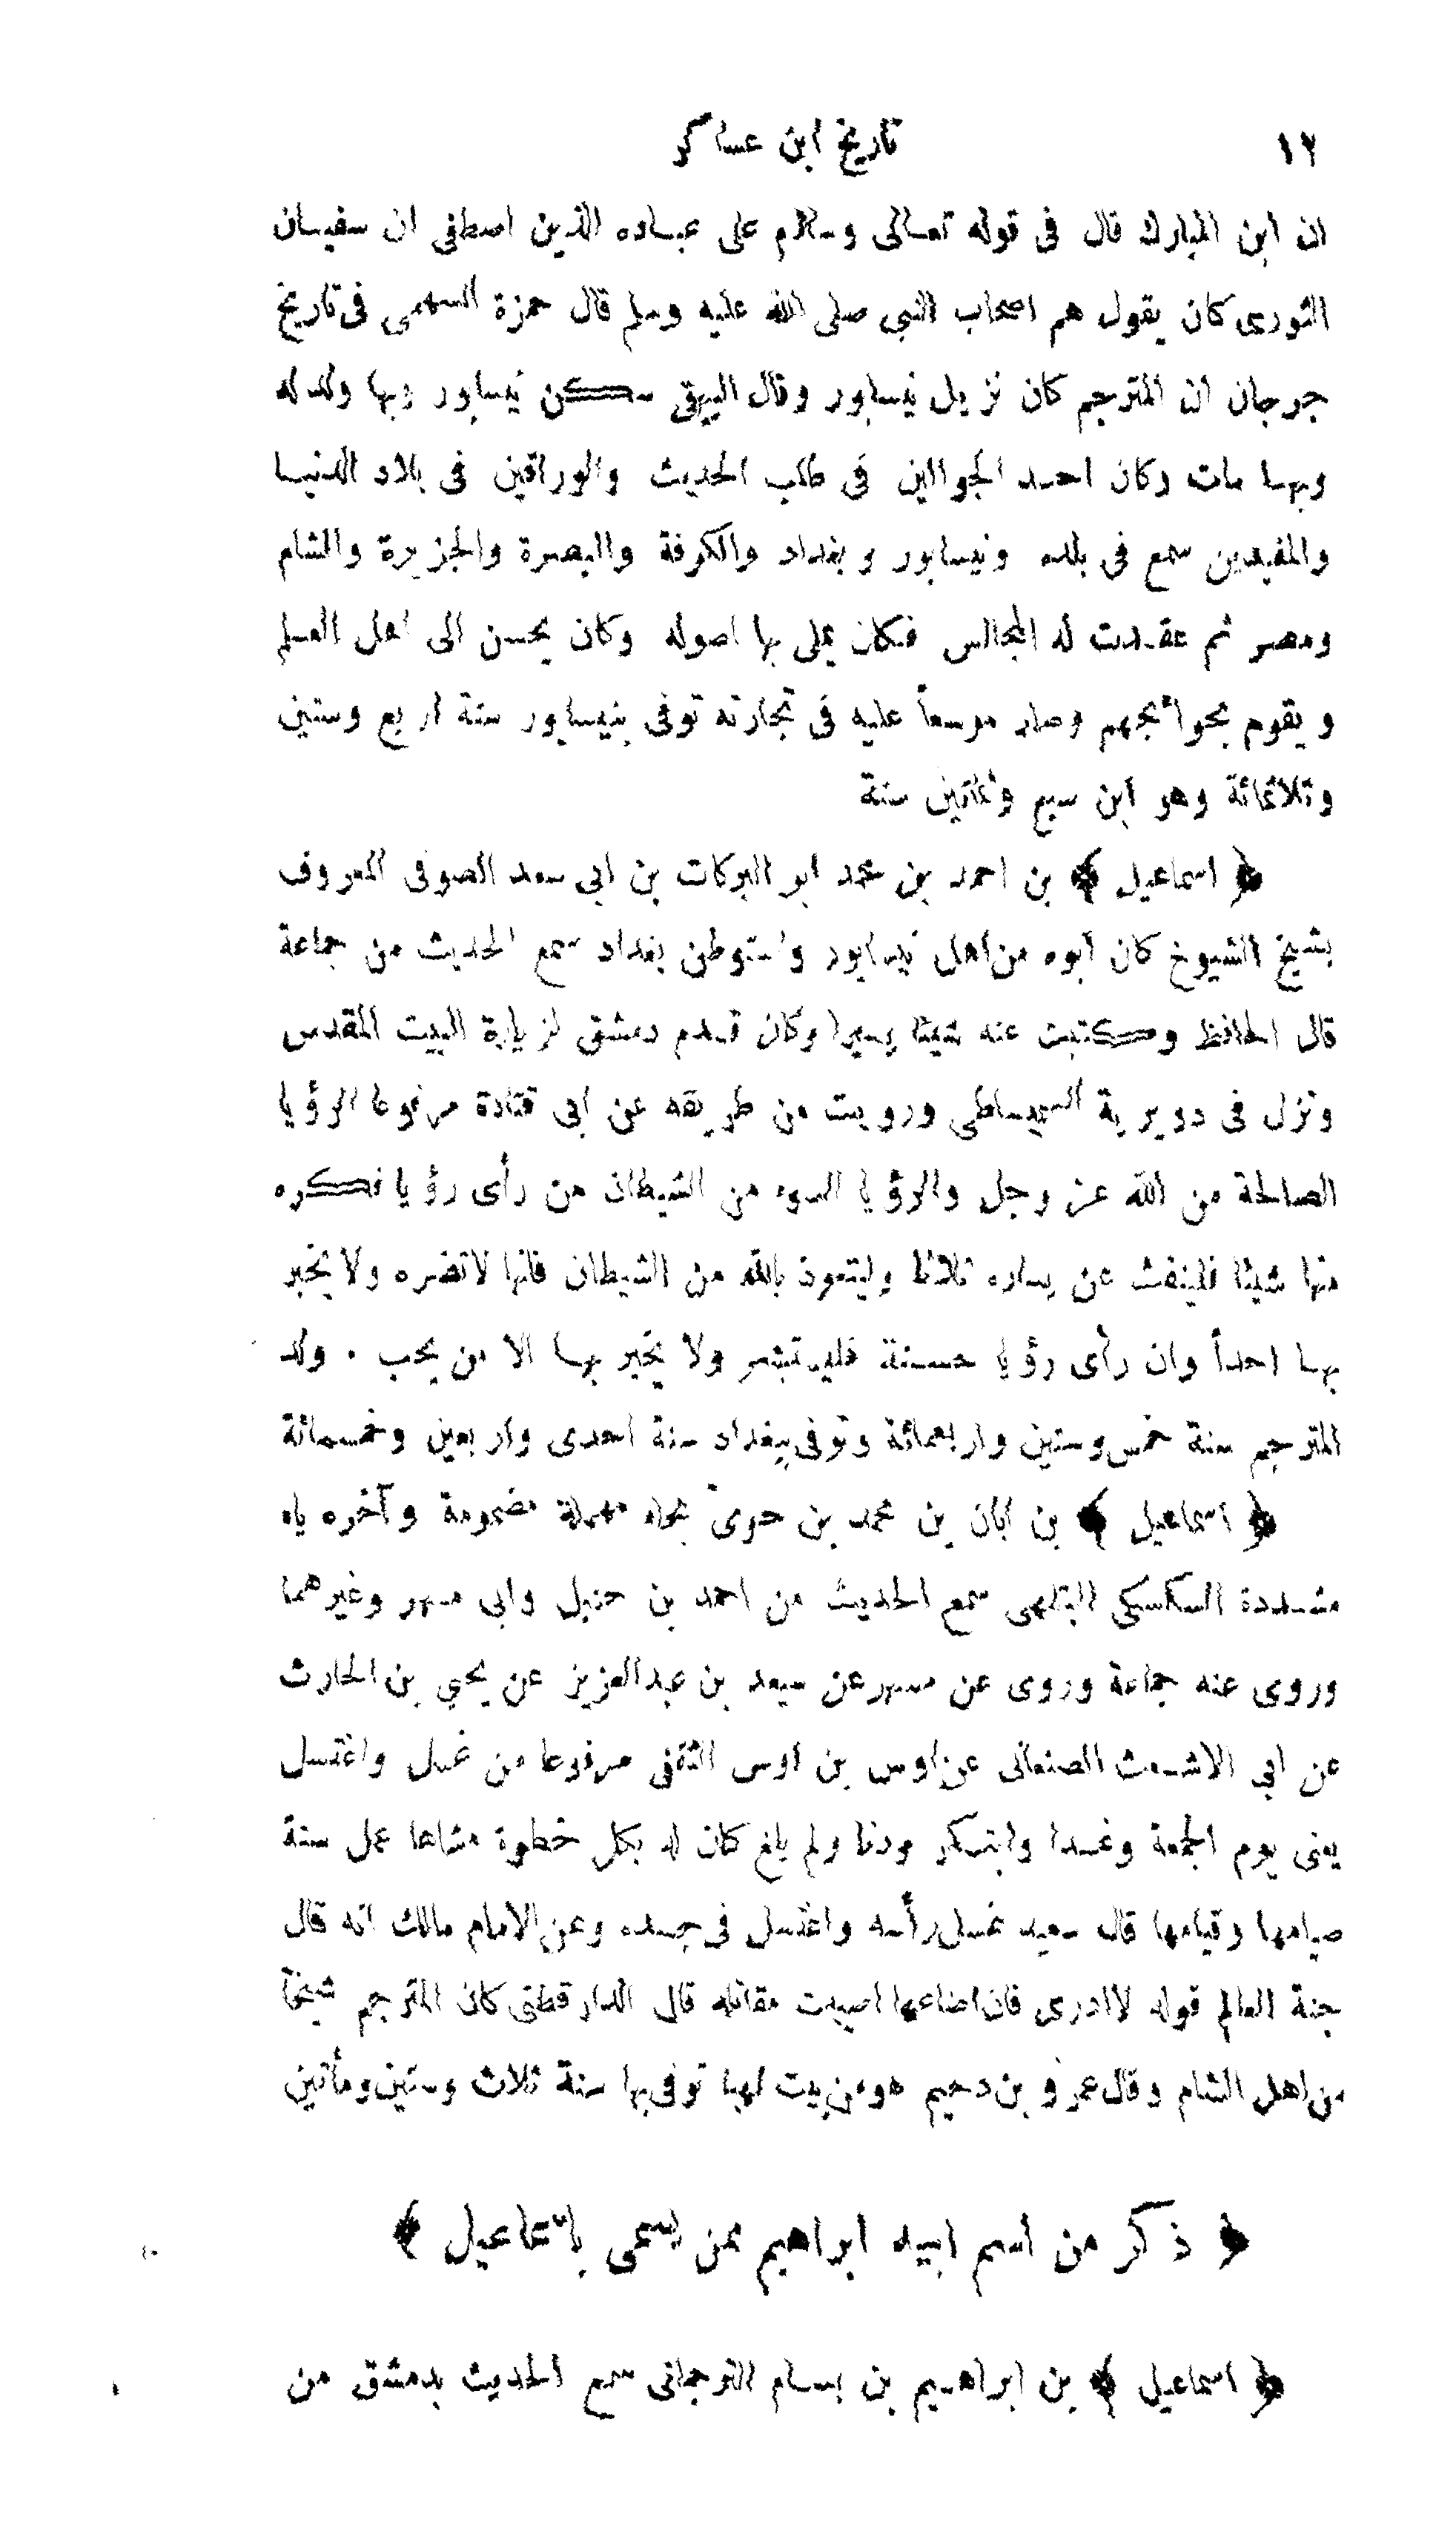 ١٢ تاريخ ابن عساكر
ان ابن المبارك قال فى قوله تعالى وسلام على عباده الذين اصطفى ان سفيان
الثورى كان يقول هم اصحاب النبى صلى الله عليه وسلم قال حمزة السهمى فى تاريخ
جرجان ان المترجم كان نزيل نيسابور وقال البيهقى سكن نيسابور وبها ولد له
وبها مات وكان احد الجوالين فى طلب الحديث والوراقين فى بلاد الدنيا
والمفيدين سمع فى بلده ونيسابور وبغداد والكوفة والبصرة والجزيرة والشام
ومصر ثم عقدت له المجالس فكان يملى بها اصوله وكان يحسن الى اهل العلم
ويقوم بحوائجهم وصار موسعاً عليه فى تجارته توفى بنيسابور سنة اربع وستين
وثلاثمائة وهو ابن سبع وثمانين سنة
﴿ اسماعيل ﴾ بن احمد بن محمد ابو البركات بن ابى سعد الصوفى المعروف
بشيخ الشيوخ كان ابوه من اهل نيسابور واستوطن بغداد سمع الحديث من جماعة
قال الحافظ وكتبت عنه شيئا يسيرا وكان قدم دمشق لزيارة البيت المقدس
ونزل فى دويرية السميساطى ورويت من طريقه عن ابى قتادة مرفوعا الرؤيا
الصالحة من الله عز وجل والرؤيا السوء من الشيطان من رأى رؤيا فكره
منها شيئا فلينفث عن يساره ثلاثا وليتعوذ بالله من الشيطان فانها لاتضره ولا يخبر
بها احداً وان رأى رؤيا حسنة فليستبشر ولا يخبر بها الا من يحب . ولد
المترجم سنة خمس وستين واربعمائة وتوفى ببغداد سنة احدى واربعين وخمسمائة
﴿ اسماعيل ﴾ بن ابان بن محمد بن حوىّ بحاء مهملة مضمومة وآخره ياء
مشددة السكسكى البتلهى سمع الحديث من احمد بن حنبل وابى مسهر وغيرهما
وروى عنه جماعة وروى عن مسهر عن سعيد بن عبدالعزيز عن يحيى بن الحارث
عن ابى الاشعث الصنعانى عن اوس بن اوس الثقفى مرفوعا من غسل واغتسل
يعنى يوم الجمعة وغدا وابتكر ودنا ولم يلغ كان له بكل خطوة مشاها عمل سنة
صيامها وقيامها قال سعيد غسل رأسه واغتسل فى جسده وعن الامام مالك انه قال
جنة العالم قوله لاادرى فان اضاعها اصيبت مقاتله قال الدارقطنى كان المترجم شيخاً
من اهل الشام وقال عمرو بن دحيم هو من بيت لهيا توفى بها سنة ثلاث وستين ومأتين
﴿ ذكر من اسم ابيه ابراهيم ممن يسمى باسماعيل ﴾
﴿ اسماعيل ﴾ بن ابراهيم بن بسام الترجمانى سمع الحديث بدمشق من